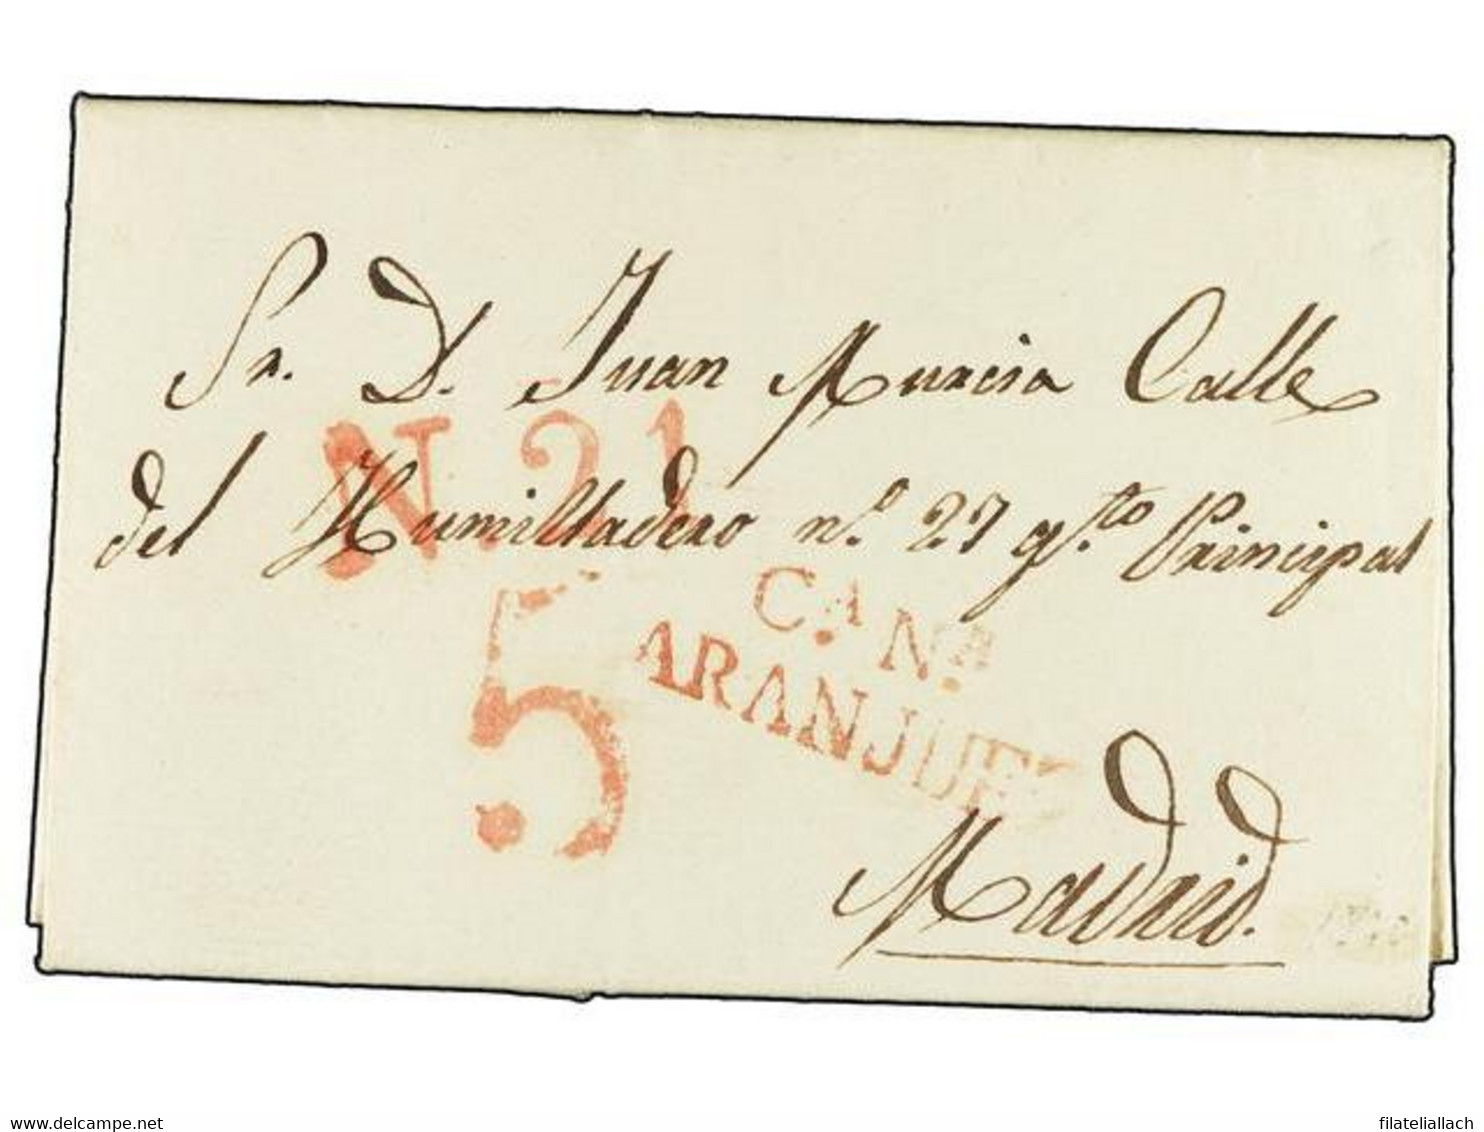 Sr. D. Juan Murcia Calle
N. 21
del Humilladero n.º 27 q.to Principal
5
C.A N.A
ARANJUEZ
Madrid.
www.delcampe.net
filateliallach